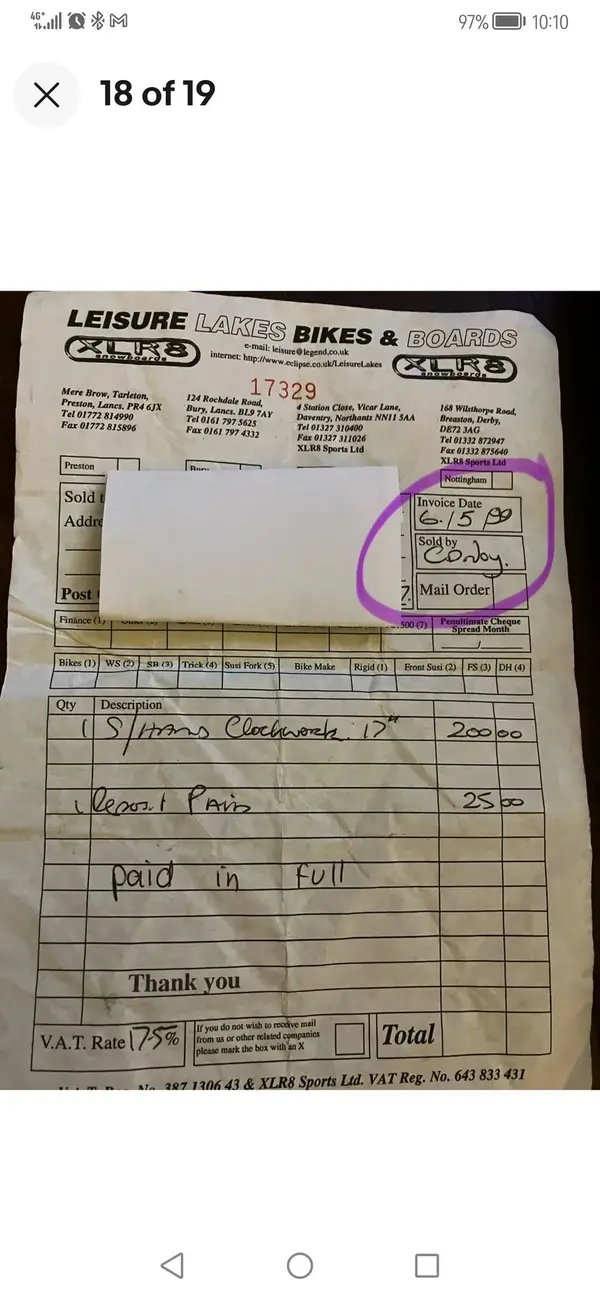 4G+
97% 10:10
18 of 19
LEISURE LAKES BIKES & BOARDS
XLR8 snowboards
e-mail: leisure@legend.co.uk
internet: http://www.eclipse.co.uk/LeisureLakes
XLR8 snowboards
17329
Mere Brow, Tarleton,
Preston, Lancs. PR4 6JX
Tel 01772 814990
Fax 01772 815896
124 Rochdale Road,
Bury, Lancs. BL9 7AY
Tel 0161 797 5625
Fax 0161 797 4332
4 Station Close, Vicar Lane,
Daventry, Northants NN11 5AA
Tel 01327 310400
Fax 01327 311026
XLR8 Sports Ltd
168 Wilsthorpe Road,
Breaston, Derby,
DE72 3AG
Tel 01332 872947
Fax 01332 875640
XLR8 Sports Ltd
Preston
Nottingham
Sold t
Addre
Post
Invoice Date
6.15
Sold by
Mail Order
Finance (1)
500 (7)
Penultimate Cheque
Spread Month
/
Bikes (1) WS (2) SB (3) Trick (4) Susi Fork (5) Bike Make Rigid (1) Front Susi (2) FS (3) DH (4)
Qty Description
1 S/Hand Clockwork 17" 200 00
1 Deposit Paid 25 00
paid in full
Thank you
V.A.T. Rate 17.5%
If you do not wish to receive mail
from us or other related companies
please mark the box with an X
Total
No. 387 1306 43 & XLR8 Sports Ltd. VAT Reg. No. 643 833 431